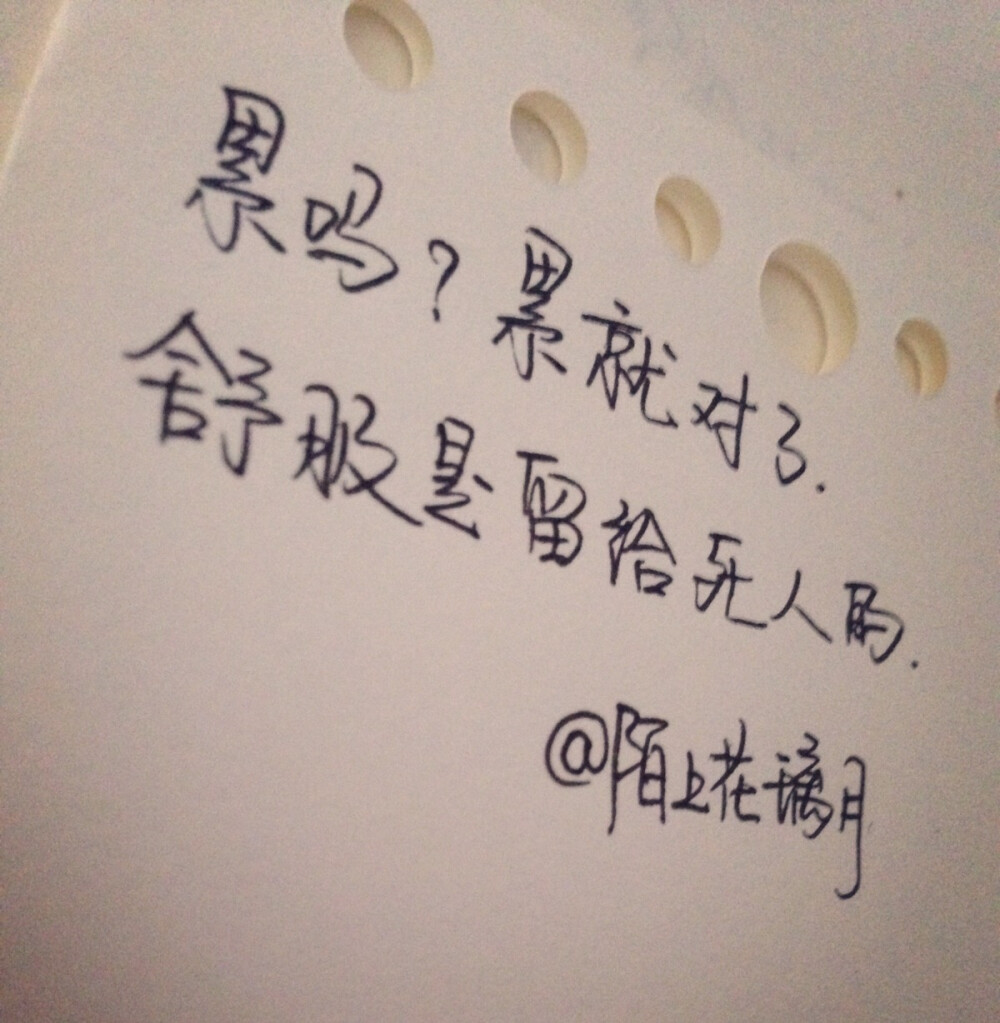 累吗?累就对了.
舒服是留给死人的.
@陌上花璃月